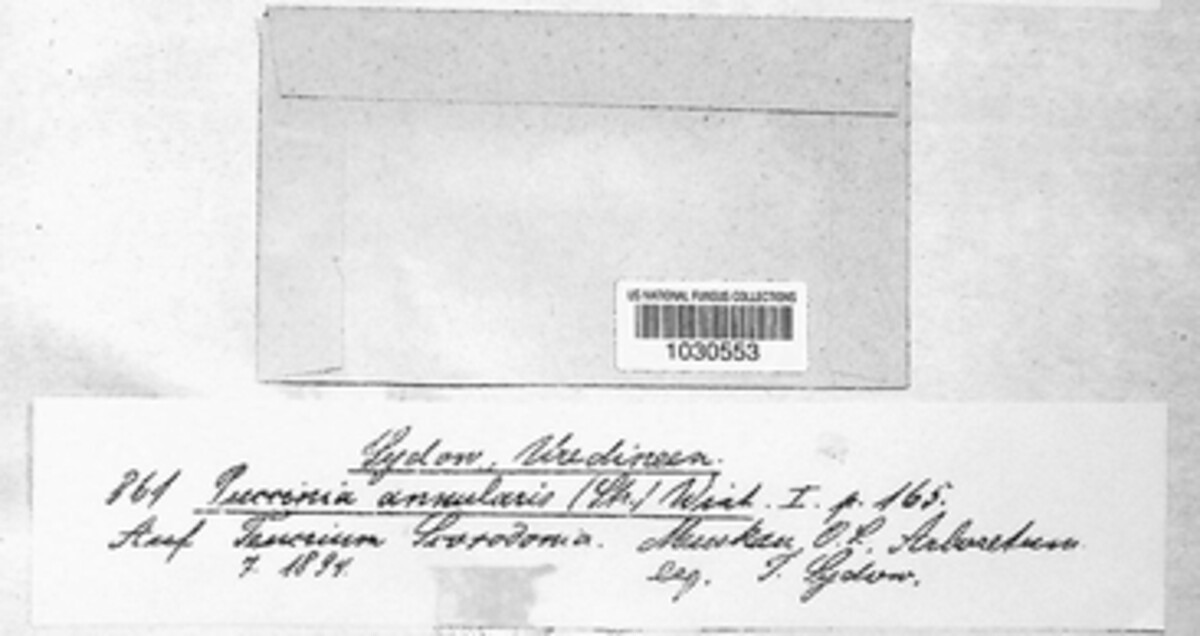 US NATIONAL FUNGUS COLLECTIONS
1030553
Sydow, Uredineen.
861 Puccinia annularis (Str.) Wint. I. p. 165.
Auf Teucrium Scorodonia. Muskau, O.L. Arboretum.
7. 1894. leg. P. Sydow.